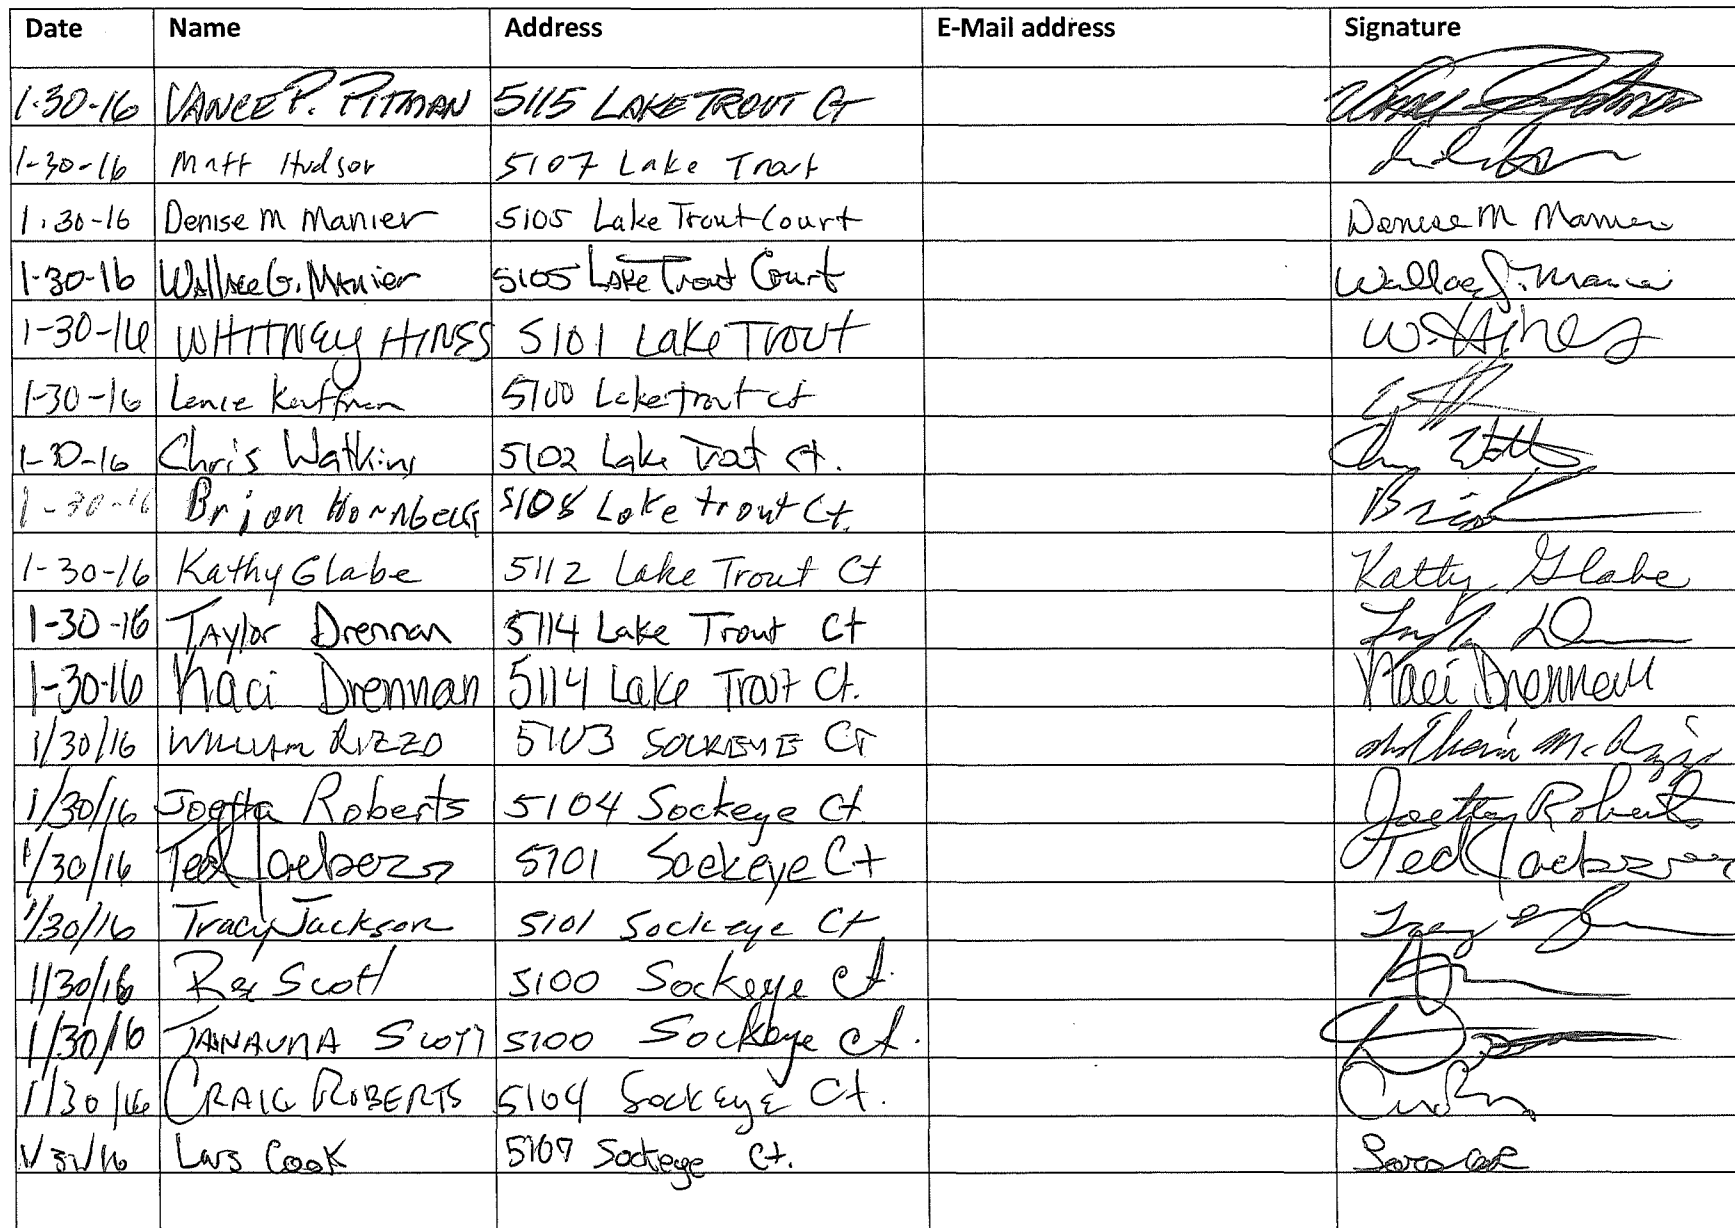 Date Name Address E-Mail address Signature
1-30-16 VANCE P. PITMAN 5115 LAKE TROUT Ct
1-30-16 Matt Hudson 5107 Lake Trout
1-30-16 Denise M Manier 5105 Lake Trout Court Denise M Manier
1-30-16 Wallace G. Manier 5105 Lake Trout Court Wallace G. Manier
1-30-16 WHITNEY HINES 5101 Lake Trout W. Hines
1-30-16 Kauffman 5100 Lake trout ct
1-30-16 Chris Watkins 5102 Lake Trout Ct. Chris
1-30-16 Brian Hornbeck 5108 Lake trout Ct. Brian
1-30-16 Kathy Glabe 5112 Lake Trout Ct Kathy Glabe
1-30-16 Taylor Drennan 5114 Lake Trout Ct
1-30-16 Kaci Drennan 5114 Lake Trout Ct. Kaci Drennan
1/30/16 William RIZZO 5103 SOCKEYE CT William M. Rizzo
1/30/16 Joetta Roberts 5104 Sockeye Ct Joetta Roberts
1/30/16 Ted Jackson 5101 Sockeye Ct Ted Jackson
1/30/16 Tracy Jackson 5101 Sockeye Ct Tracy
1/30/16 Scott 5100 Sockeye Ct.
1/30/16 TANAUNA SCOTT 5100 Sockeye Ct.
1/30/16 CRAIG ROBERTS 5104 Sockeye Ct.
Cook 5107 Sockeye Ct.